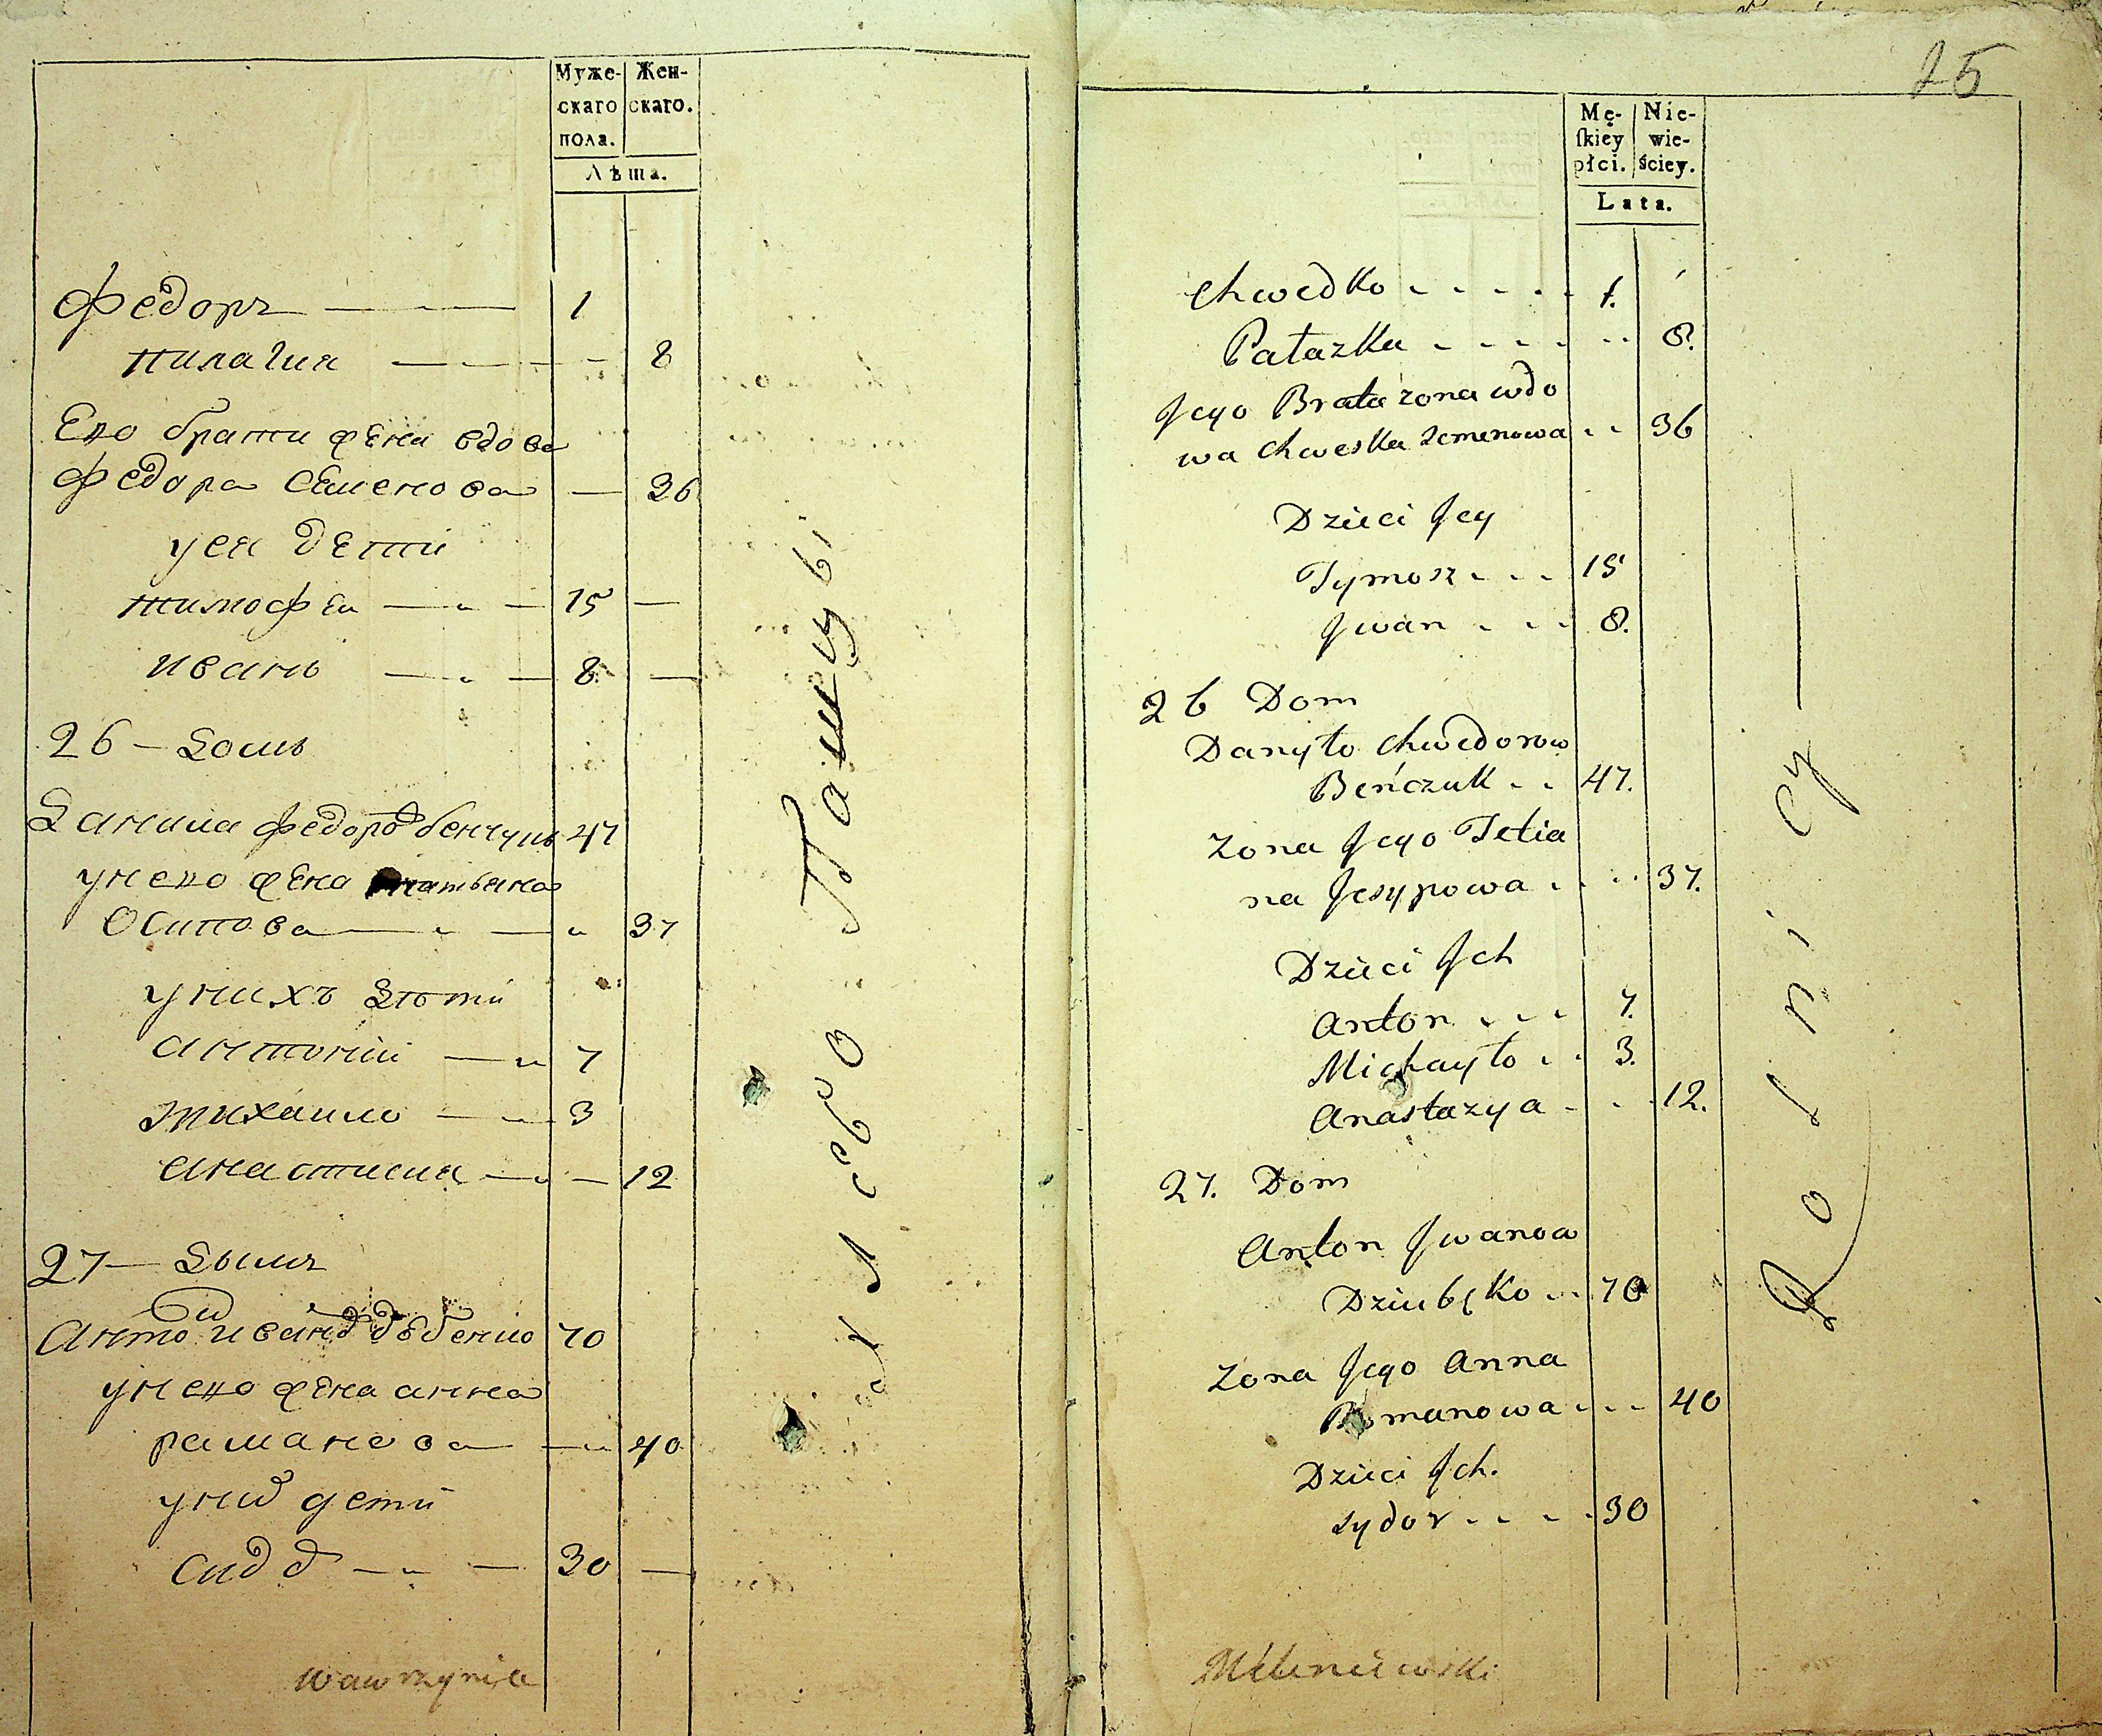 Муже-
скаго
пола.
Жен-
скаго.
Лѣта.
Федоръ 1
пилагия 8
Его брати жена вдова
Федора Семенова 36
у ея дети
тимофеи 15
иванъ 8
26 Домъ
Данила федоров бенчукъ 47
у него жена татьяна
Осипова 37
у нихъ дѣти
антоний 7
михаило 3
анастисия 12
27 Домъ
Антон иванов 70
у него жена анна
раманова 40
у них дети
Сидор 30
Пашуть
Wawrzynie
25
Mę-
skiey
płci.
Nie-
wie-
ściey.
Lata.
Chwedko 1.
Pałazka 8.
Jego Brata zona wdo
wa Chweska Semenowa 36
Dzieci Jey
Tymosz 15
Jwan 8.
26 Dom
Danyło Chwedorow
Beńczuk 47.
Zona Jego Tetia
na Jesypowa 37.
Dzieci Jch
Anton 7.
Michayło 3.
Anastazya 12.
27. Dom
Anton Jwanow
Dziubęko 70
Zona Jego Anna
Romanowa 40
Dzieci Jch.
Sydor 30
Rolnicy